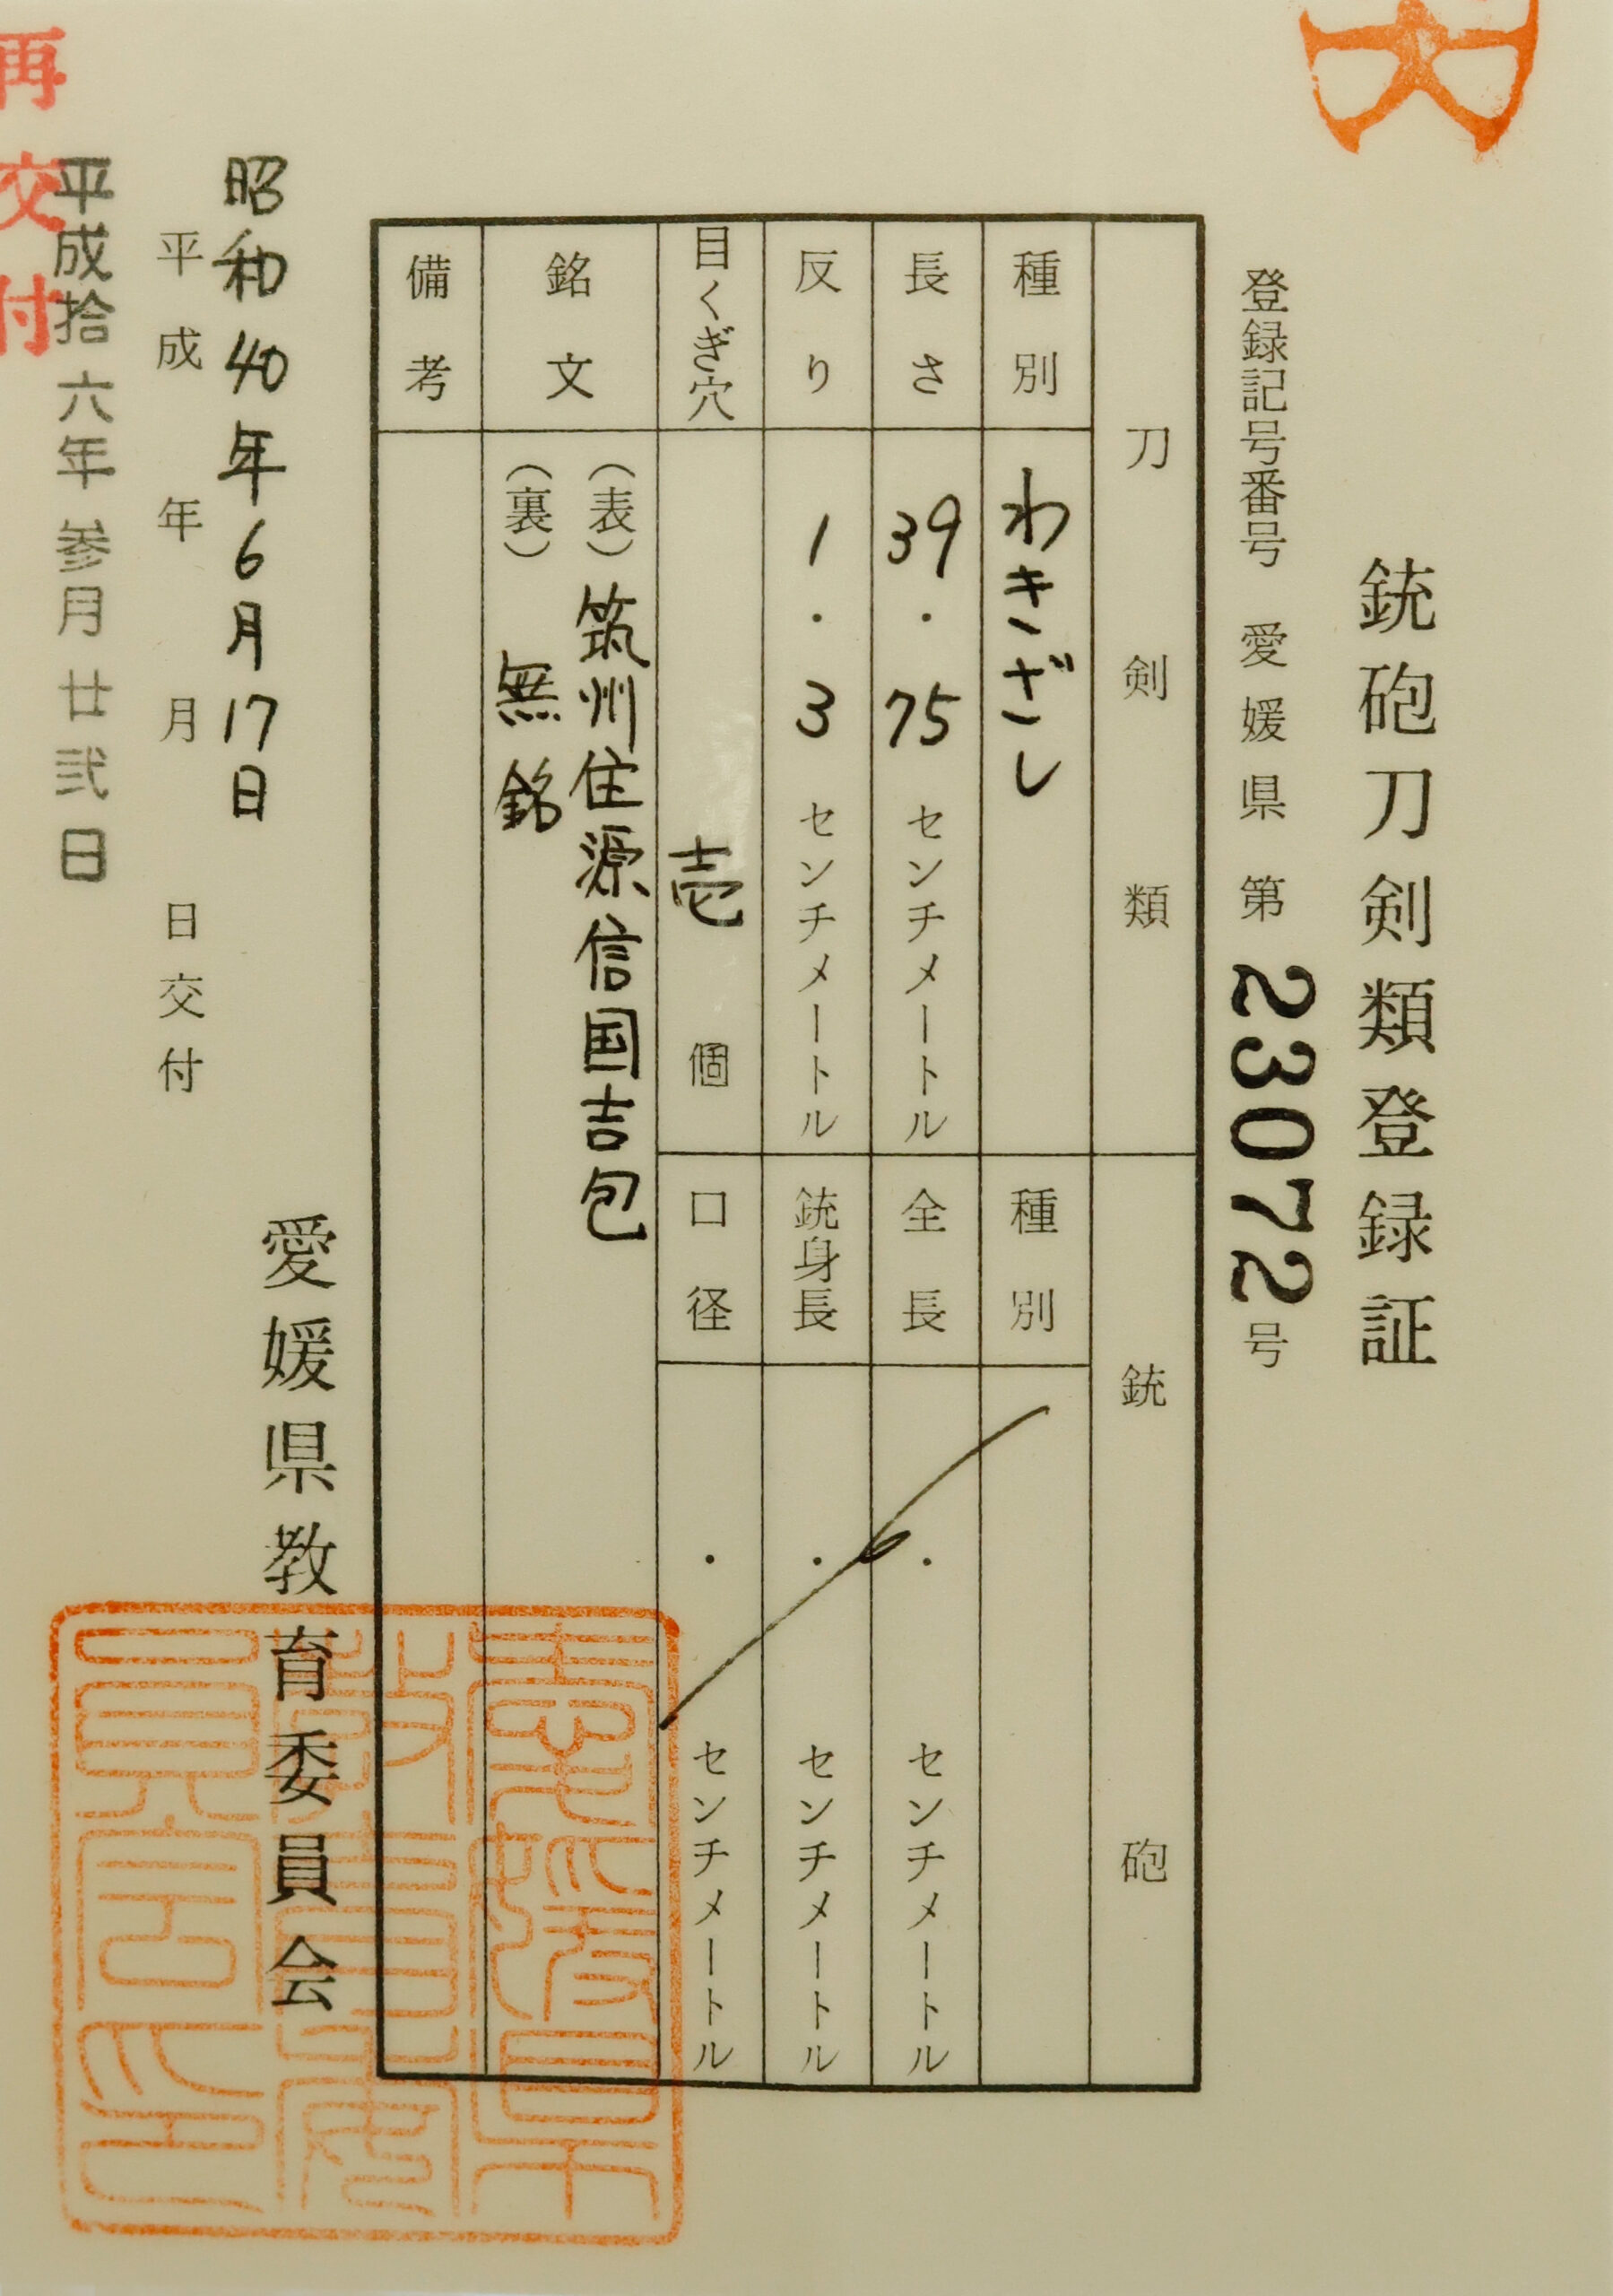 銃砲刀剣類登録証
登録記号番号 愛媛県 第 23072 号
刀剣類
銃砲
種別 わきざし
種別
長さ 39.75 センチメートル
全長 ・ センチメートル
反り 1.3 センチメートル
銃身長 ・ センチメートル
目くぎ穴 壱 個
口径 ・ センチメートル
銘文 (表) 筑州住源信国吉包
(裏) 無銘
備考
愛媛県教育委員会
昭和40年6月17日
平成 年 月 日交付
平成拾六年参月廿弐日
再交付
愛媛県
教育委
員会印